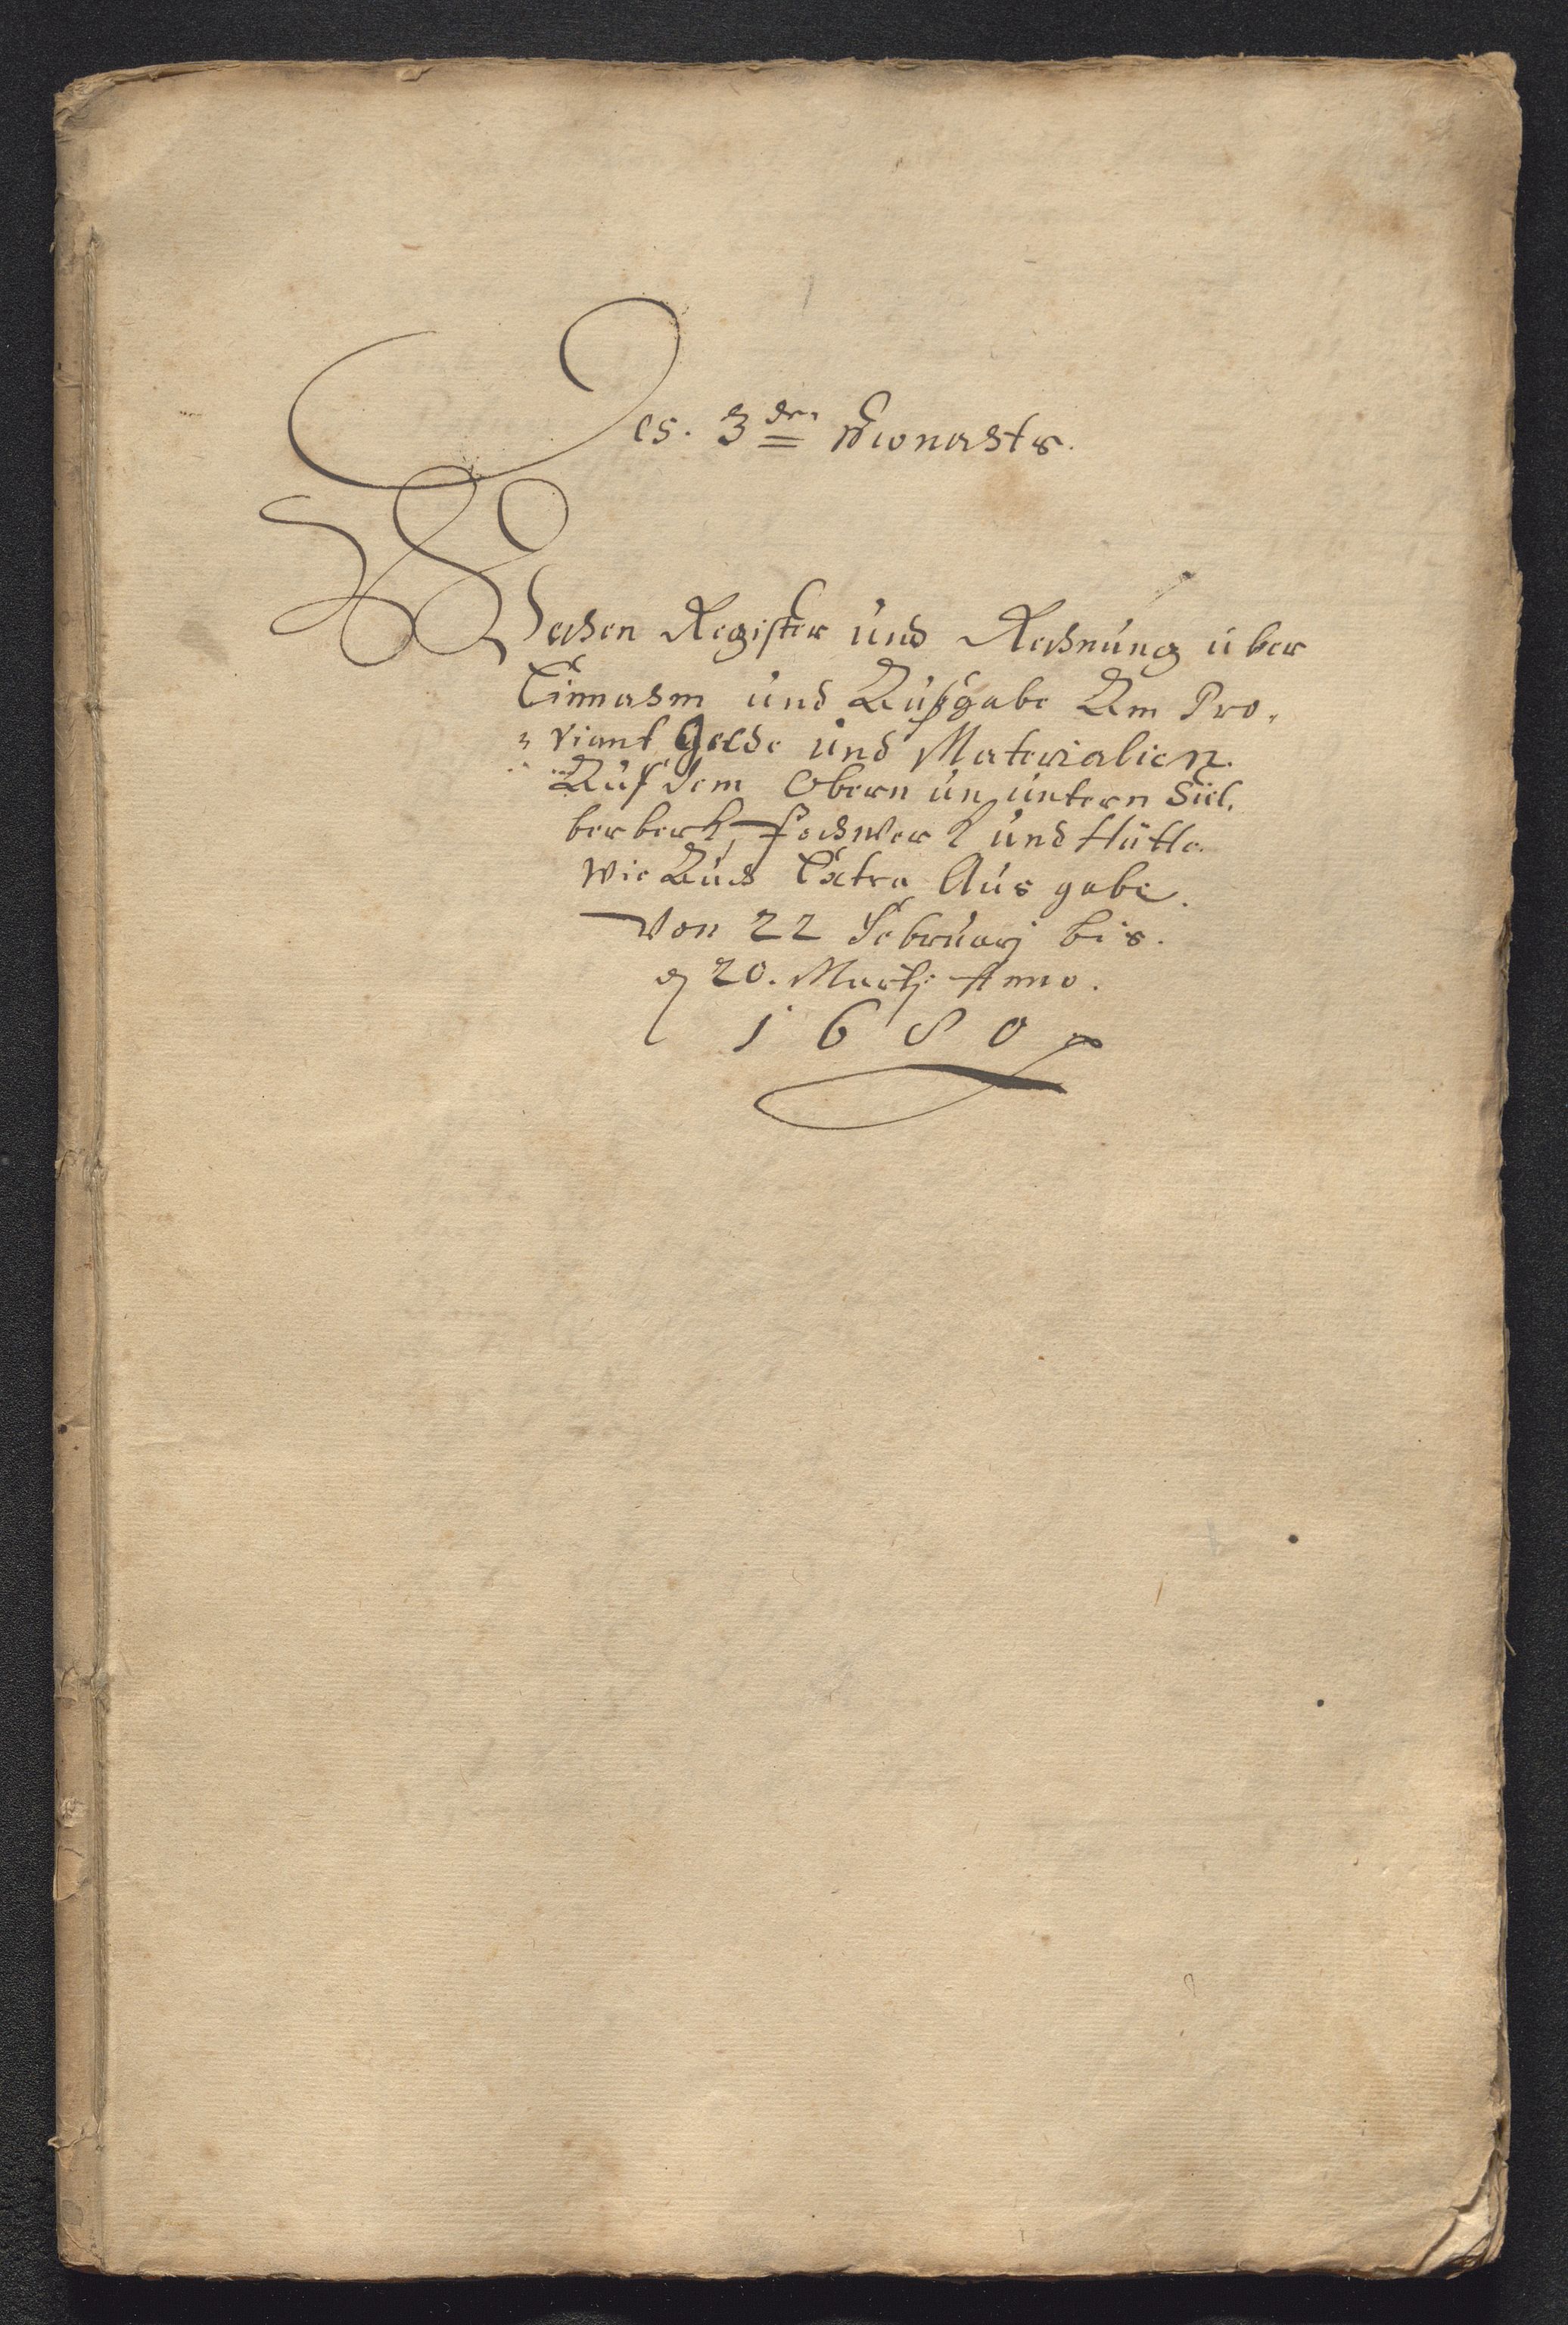 Des. 3den Monahts.
Wochen Register und Rechnung über
Einnahm und Außgabe Am Pro,
viant Gelde und Materialien.
Auf dem Obern un untern Sül,
berberk, Pochwerk und Hütte.
Wie Auch Extra Ausgabe.
Von 22 Februarj bis.
20. Martj Anno.
1680